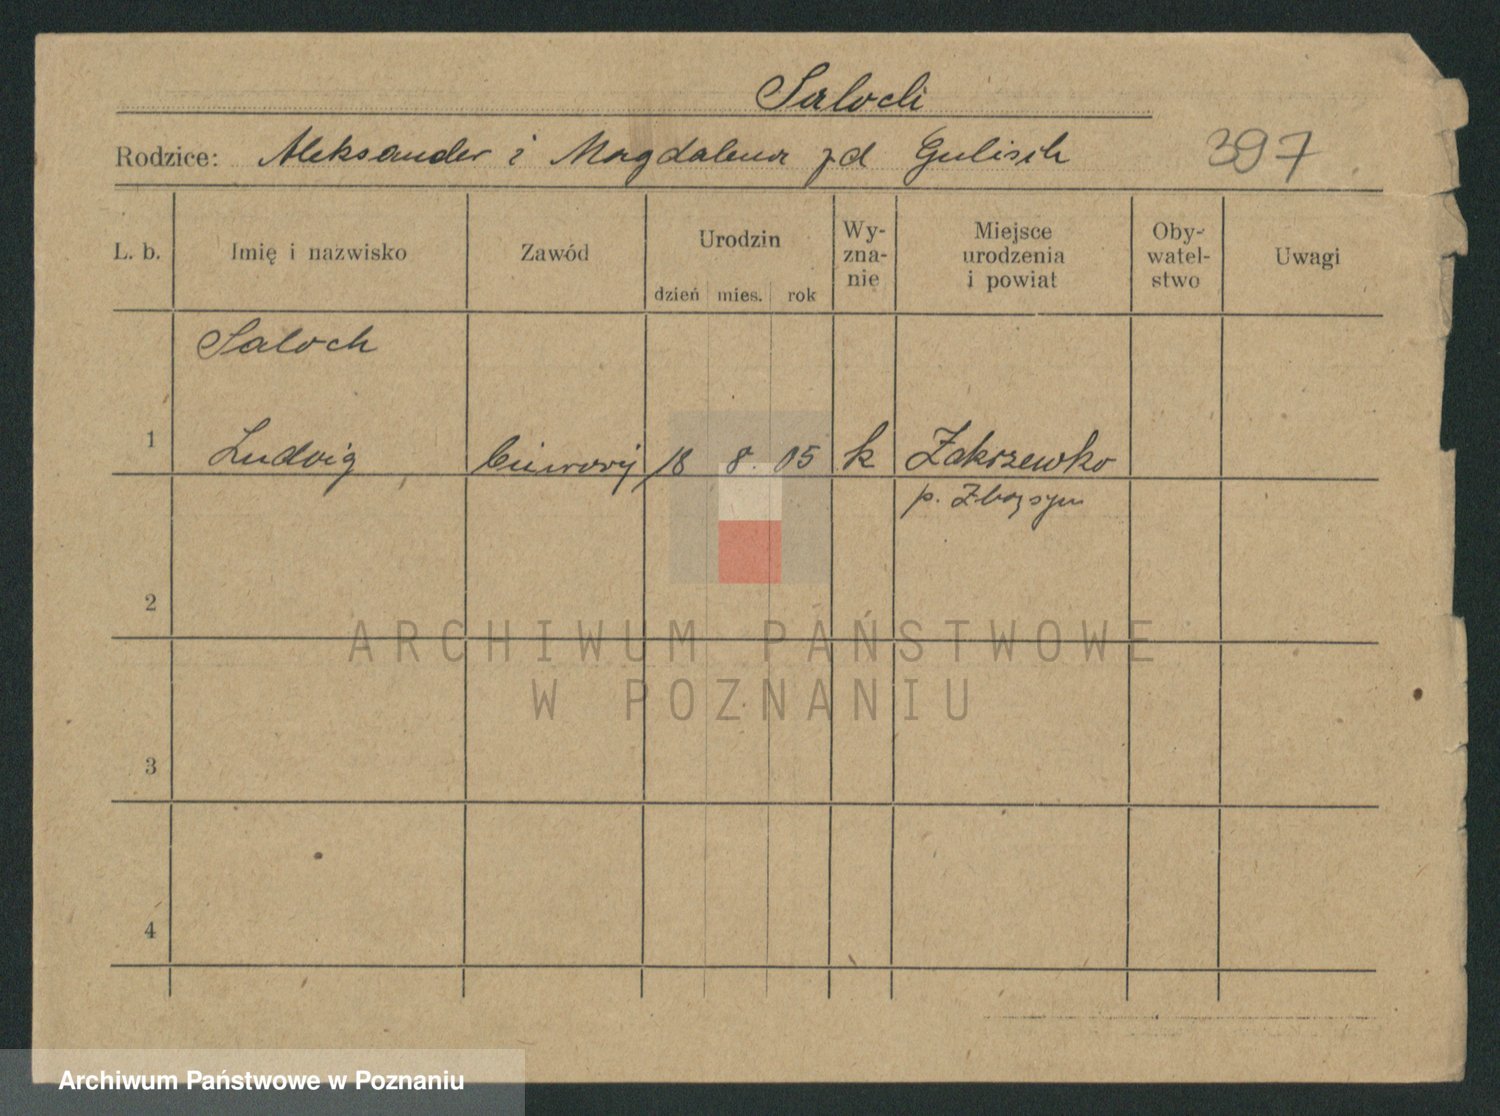 Saloch
Rodzice: Aleksander i Magdalena zd Gulisch 397
L. b. Imię i nazwisko Zawód Urodzin dzień mies. rok Wy-zna-nie Miejsce urodzenia i powiat Oby-watel-stwo Uwagi
Saloch
1 Ludwig biurowy 18 8. 05 k Zakrzewko
p. Zbąszyn
2
ARCHIWUM PAŃSTWOWE
W POZNANIU
3
4
Archiwum Państwowe w Poznaniu